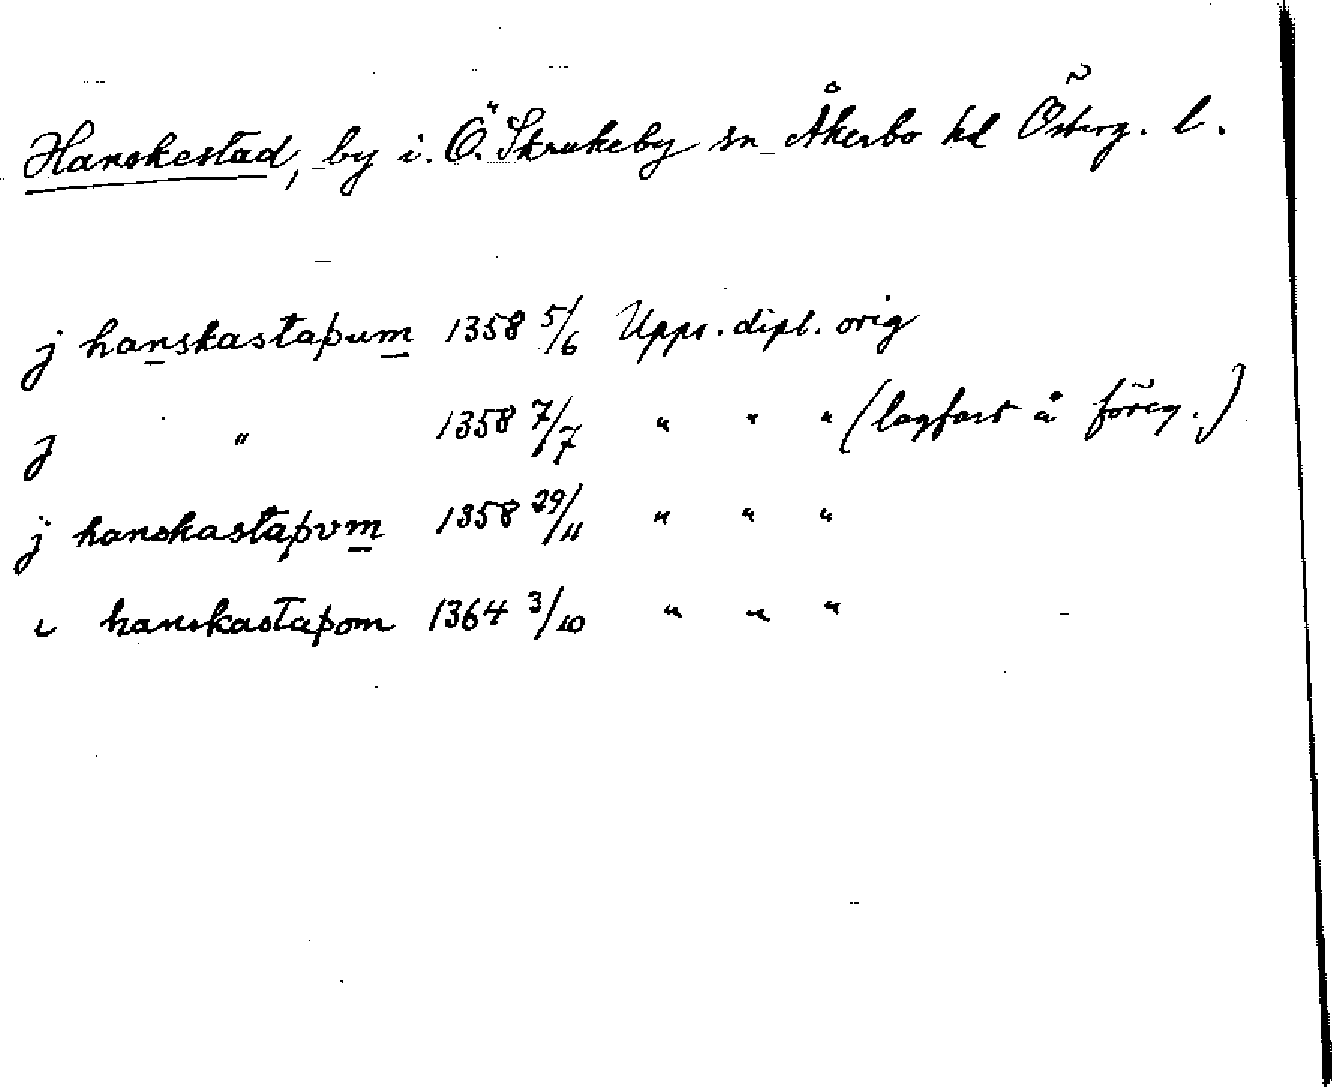 Hanskestad, by i. Ö. Skrukeby sn Åkerbo hd Österg. l.
j hanskastaþum 1358 5/6 Upps. dipl. orig
j " 1358 7/7 " " " (lagfart å föreg.)
j hanskastaþvm 1358 29/11 " " "
i hanskastaþom 1364 3/10 " " "